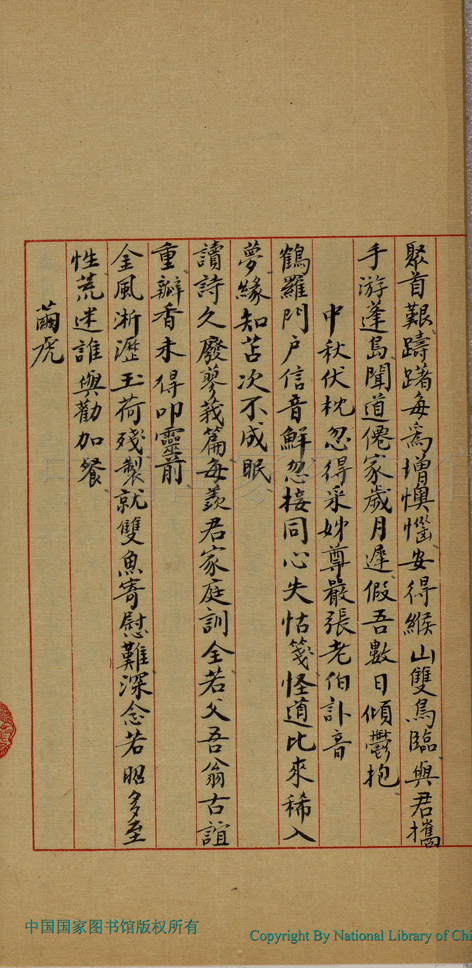 聚首艱躊躇每為增懊惱安得緱山雙鳥臨與君攜
手游蓬島聞道僊家歲月遲假吾數日傾鬱抱
中秋伏枕忽得采姊尊嚴張老伯訃音
鶴羅門戶信音鮮忽接同心失怙箋怪道比來稀入
夢緣知苫次不成眠
讀詩久廢蓼莪篇每羨君家庭訓全若父吾翁古誼
重瓣香未得叩靈前
金風淅瀝玉荷殘製就雙魚寄慰難深念若昭多至
性荒迷誰與勸加餐
繭虎
中国国家图书馆版权所有
Copyright By National Library of Chi